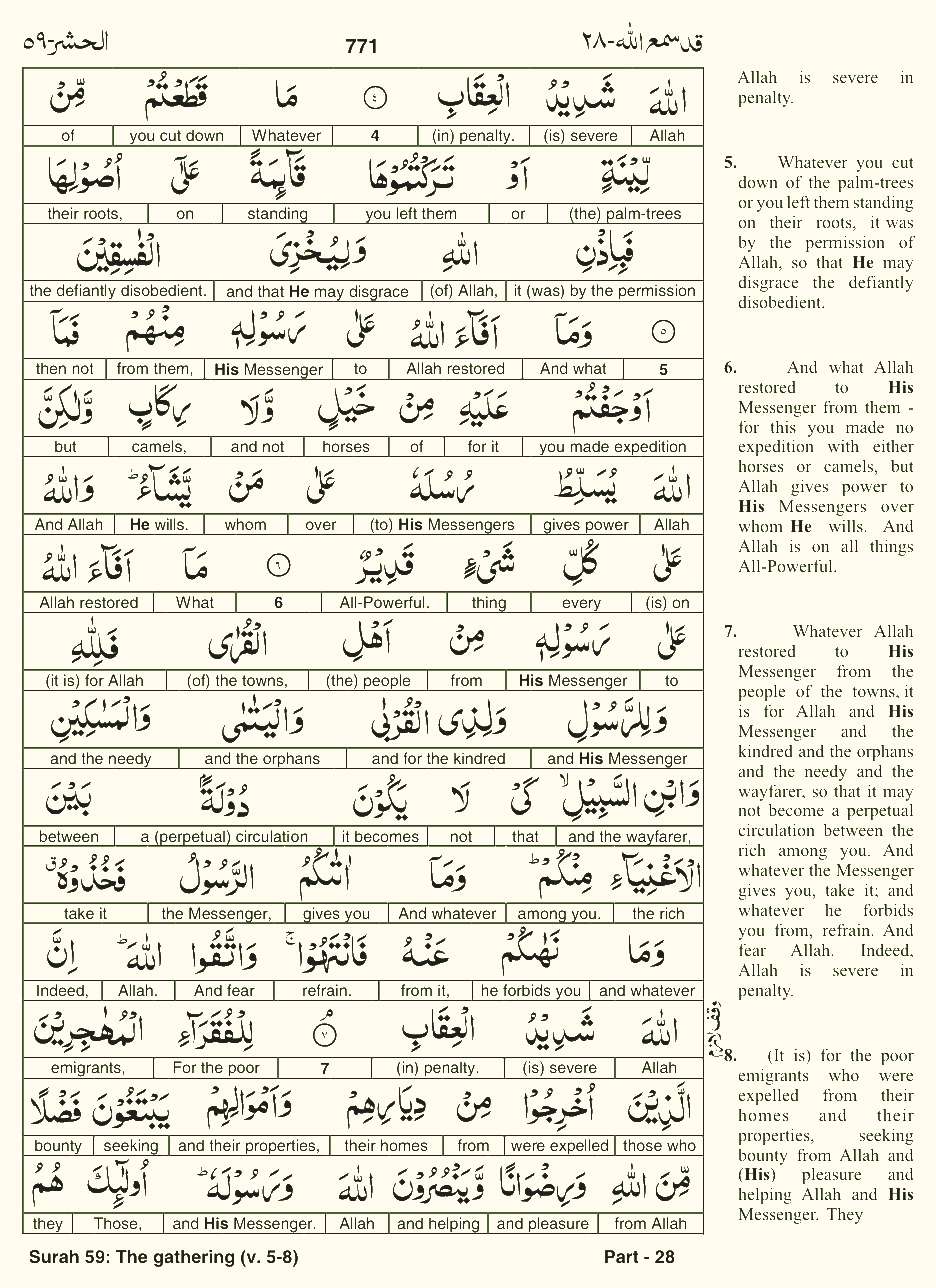 قد سمع الله-٢٨ 771 الحشر-٥٩
اللهَ شَدِيْدُ الْعِقَابِ ٤ مَا قَطَعْتُمْ مِّنْ
Allah (is) severe (in) penalty. 4 Whatever you cut down of
لِّيْنَةٍ اَوْ تَرَكْتُمُوْهَا قَآئِمَةً عَلٰٓى اُصُوْلِهَا
(the) palm-trees or you left them standing on their roots,
فَبِاِذْنِ اللهِ وَلِيُخْزِىَ الْفٰسِقِيْنَ
it (was) by the permission (of) Allah, and that He may disgrace the defiantly disobedient.
٥ وَمَآ اَفَآءَ اللهُ عَلٰى رَسُوْلِهٖ مِنْهُمْ فَمَآ
5 And what Allah restored to His Messenger from them, then not
اَوْجَفْتُمْ عَلَيْهِ مِنْ خَيْلٍ وَّلَا رِكَابٍ وَّلٰكِنَّ
you made expedition for it of horses and not camels, but
اللهَ يُسَلِّطُ رُسُلَهٗ عَلٰى مَنْ يَّشَآءُ ؕ وَاللهُ
Allah gives power (to) His Messengers over whom He wills. And Allah
عَلٰى كُلِّ شَىْءٍ قَدِيْرٌ ٦ مَآ اَفَآءَ اللهُ
(is) on every thing All-Powerful. 6 What Allah restored
عَلٰى رَسُوْلِهٖ مِنْ اَهْلِ الْقُرٰى فَلِلّٰهِ
to His Messenger from (the) people (of) the towns, (it is) for Allah
وَلِلرَّسُوْلِ وَلِذِى الْقُرْبٰى وَالْيَتٰمٰى وَالْمَسٰكِيْنِ
and His Messenger and for the kindred and the orphans and the needy
وَابْنِ السَّبِيْلِ ۙ كَىْ لَا يَكُوْنَ دُوْلَةًۢ بَيْنَ
and the wayfarer, that not it becomes a (perpetual) circulation between
الْاَغْنِيَآءِ مِنْكُمْ ؕ وَمَآ اٰتٰىكُمُ الرَّسُوْلُ فَخُذُوْهُ ۗ
the rich among you. And whatever gives you the Messenger, take it
وَمَا نَهٰىكُمْ عَنْهُ فَانْتَهُوْا ۚ وَاتَّقُوا اللهَ ؕ اِنَّ
and whatever he forbids you from it, refrain. And fear Allah. Indeed,
اللهَ شَدِيْدُ الْعِقَابِ ٧ لِلْفُقَرَآءِ الْمُهٰجِرِيْنَ
Allah (is) severe (in) penalty. 7 For the poor emigrants,
الَّذِيْنَ اُخْرِجُوْا مِنْ دِيَارِهِمْ وَاَمْوَالِهِمْ يَبْتَغُوْنَ فَضْلًا
those who were expelled from their homes and their properties, seeking bounty
مِّنَ اللهِ وَرِضْوَانًا وَّيَنْصُرُوْنَ اللهَ وَرَسُوْلَهٗ ؕ اُولٰٓئِكَ هُمُ
from Allah and pleasure and helping Allah and His Messenger. Those, they
Allah is severe in
penalty.
5. Whatever you cut
down of the palm-trees
or you left them standing
on their roots, it was
by the permission of
Allah, so that He may
disgrace the defiantly
disobedient.
6. And what Allah
restored to His
Messenger from them -
for this you made no
expedition with either
horses or camels, but
Allah gives power to
His Messengers over
whom He wills. And
Allah is on all things
All-Powerful.
7. Whatever Allah
restored to His
Messenger from the
people of the towns, it
is for Allah and His
Messenger and the
kindred and the orphans
and the needy and the
wayfarer, so that it may
not become a perpetual
circulation between the
rich among you. And
whatever the Messenger
gives you, take it; and
whatever he forbids
you from, refrain. And
fear Allah. Indeed,
Allah is severe in
penalty.
وقف لازم
8. (It is) for the poor
emigrants who were
expelled from their
homes and their
properties, seeking
bounty from Allah and
(His) pleasure and
helping Allah and His
Messenger. They
Surah 59: The gathering (v. 5-8) Part - 28